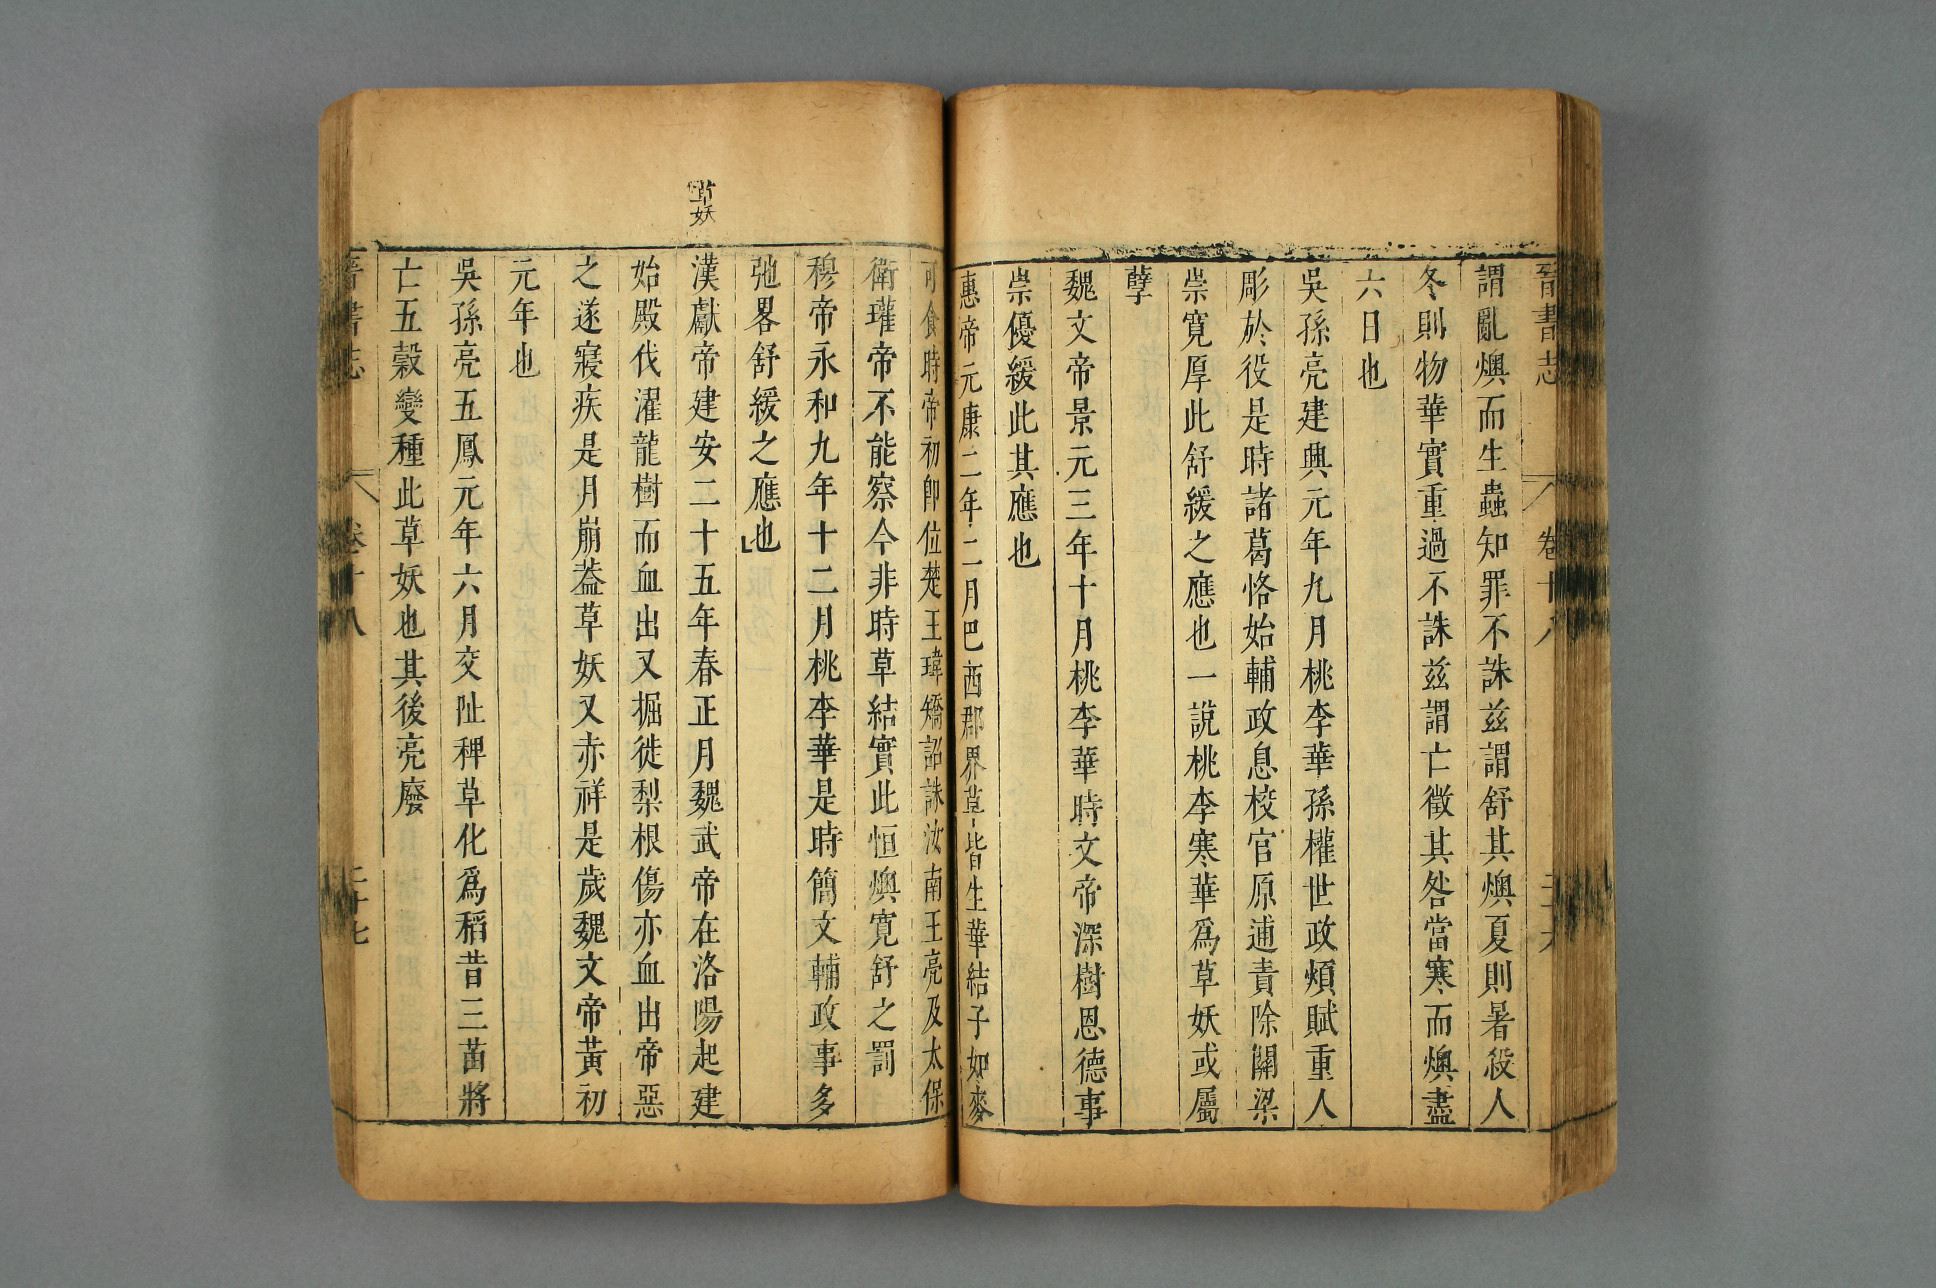 晉書志 卷十八 二十六
謂亂燠而生蟲知罪不誅兹謂舒其燠夏則暑殺人
冬則物華實重過不誅兹謂亡徵其咎當寒而燠盡
六日也
吳孫亮建興元年九月桃李華孫權世政煩賦重人
彫於役是時諸葛恪始輔政息校官原逋責除關梁
崇寬厚此舒緩之應也一說桃李寒華爲草妖或屬
孽
魏文帝景元三年十月桃李華時文帝深樹恩德事
崇優緩此其應也
惠帝元康二年二月巴西郡界草皆生華結子如麥
可食時帝初卽位楚王瑋矯詔誅汝南王亮及太保
衛瓘帝不能察今非時草結實此恒燠寬舒之罰
穆帝永和九年十二月桃李華是時簡文輔政事多
弛畧舒緩之應也
草妖
漢獻帝建安二十五年春正月魏武帝在洛陽起建
始殿伐濯龍樹而血出又掘徙梨根傷亦血出帝惡
之遂寢疾是月崩葢草妖又赤祥是歲魏文帝黃初
元年也
吳孫亮五鳳元年六月交阯稗草化爲稻昔三苗將
亡五穀變種此草妖也其後亮廢
晉書志 卷十八 二十七